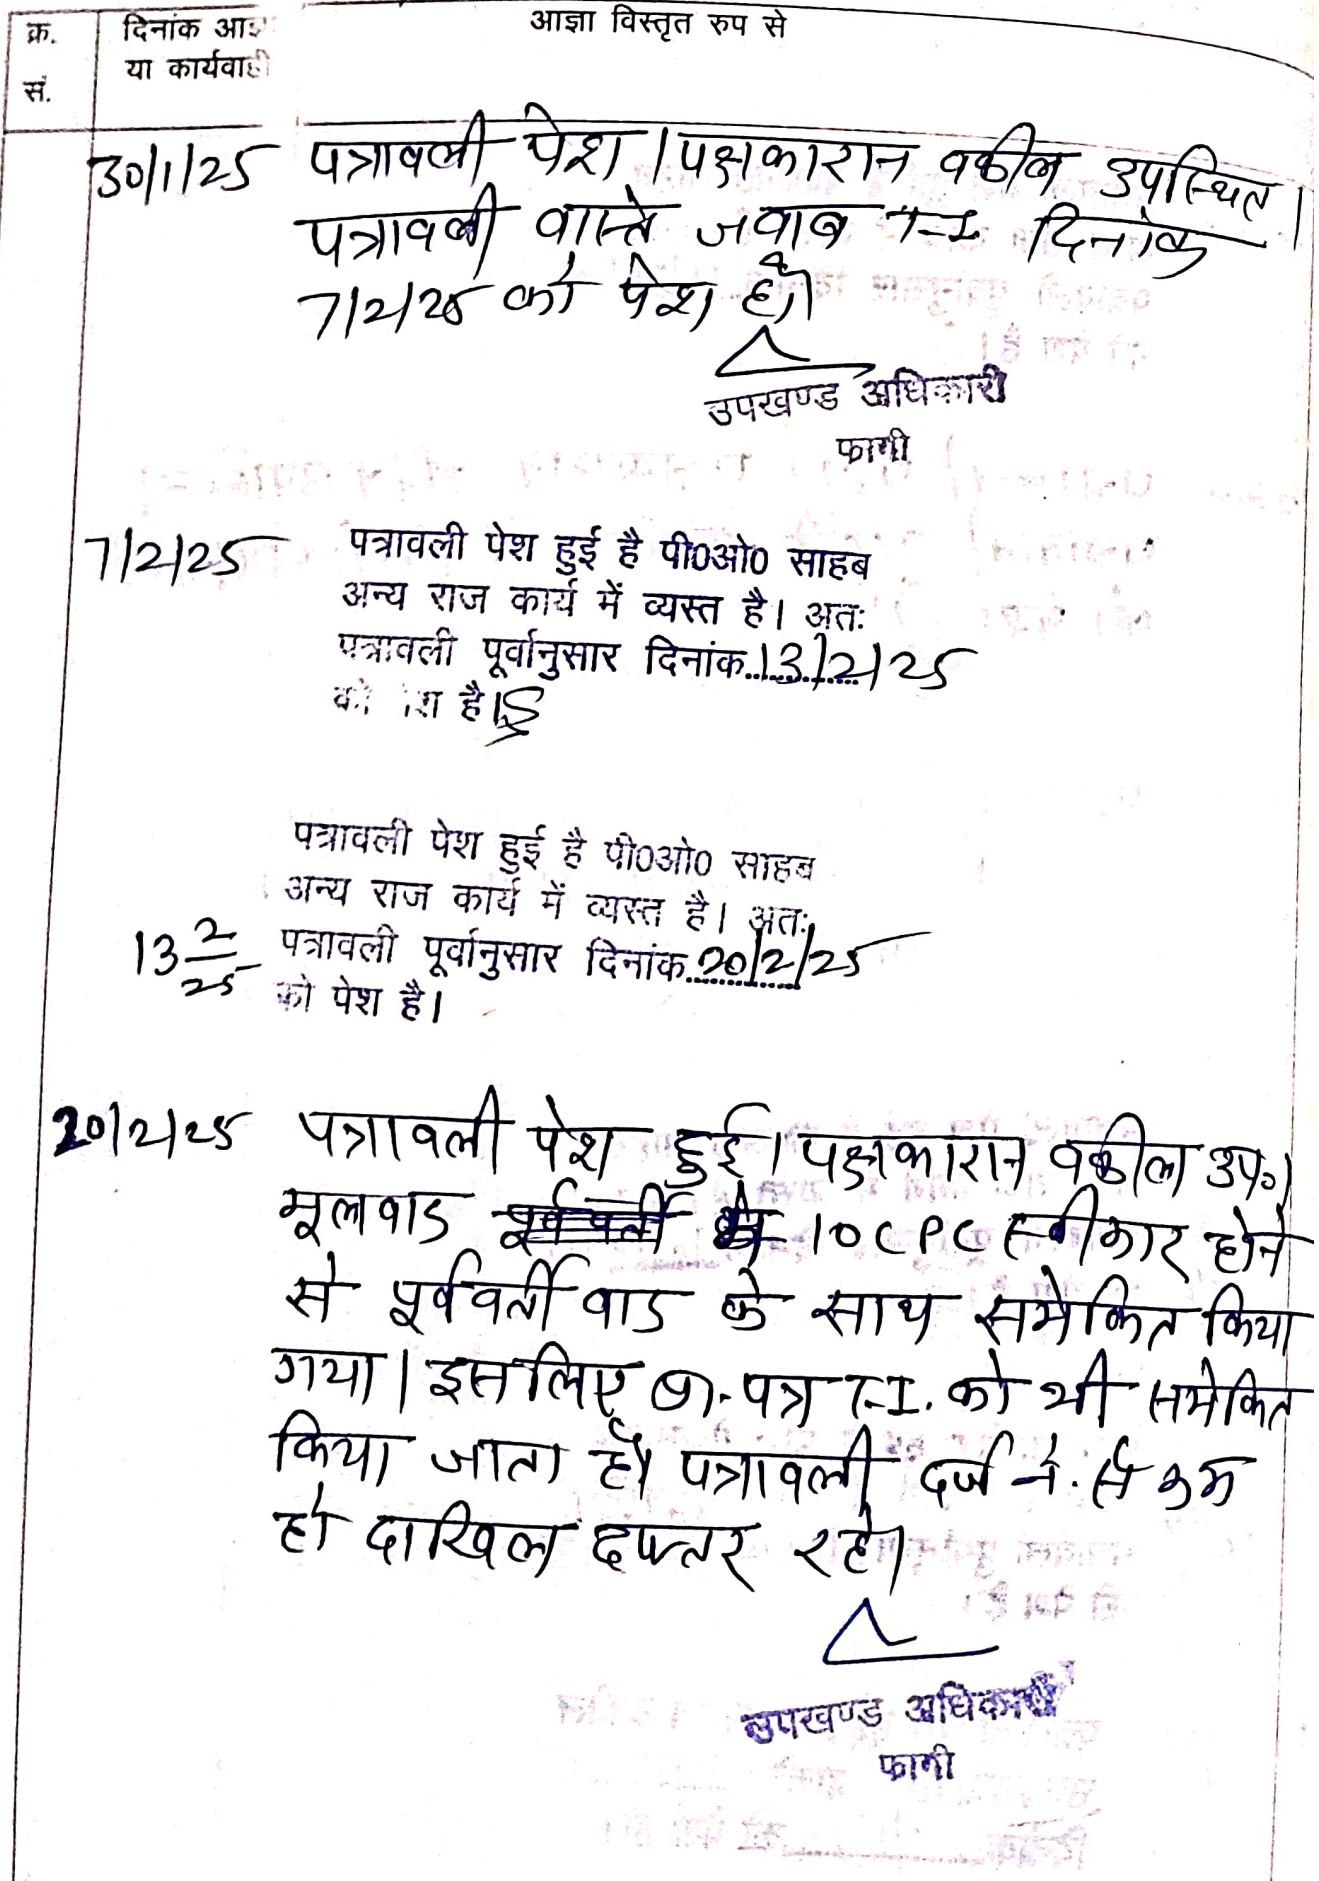 क्र. सं.
दिनांक आज्ञ
या कार्यवाही
आज्ञा विस्तृत रुप से
30/1/25 पत्रावली पेश। पक्षकारान वकील उपस्थित।
पत्रावली वास्ते जवाब T-I दिनांक
7/2/25 को पेश हो।
उपखण्ड अधिकारी
फागी
7/2/25 पत्रावली पेश हुई है पी0ओ0 साहब
अन्य राज कार्य में व्यस्त है। अतः
पत्रावली पूर्वानुसार दिनांक..13/2/25
को पेश है।
पत्रावली पेश हुई है पी0ओ0 साहब
अन्य राज कार्य में व्यस्त है। अतः
13 2/25 पत्रावली पूर्वानुसार दिनांक..20/2/25
को पेश है।
20/2/25 पत्रावली पेश हुई। पक्षकारान वकील उप०।
मूलवाद 10 CPC स्वीकार होने
से पूर्ववर्ती वाद के साथ समेकित किया
गया। इसलिए प्रा.पत्र T-I. को भी समेकित
किया जाता है। पत्रावली दर्ज नं. से कम
हो दाखिल दफ्तर रहे।
उपखण्ड अधिकारी
फागी